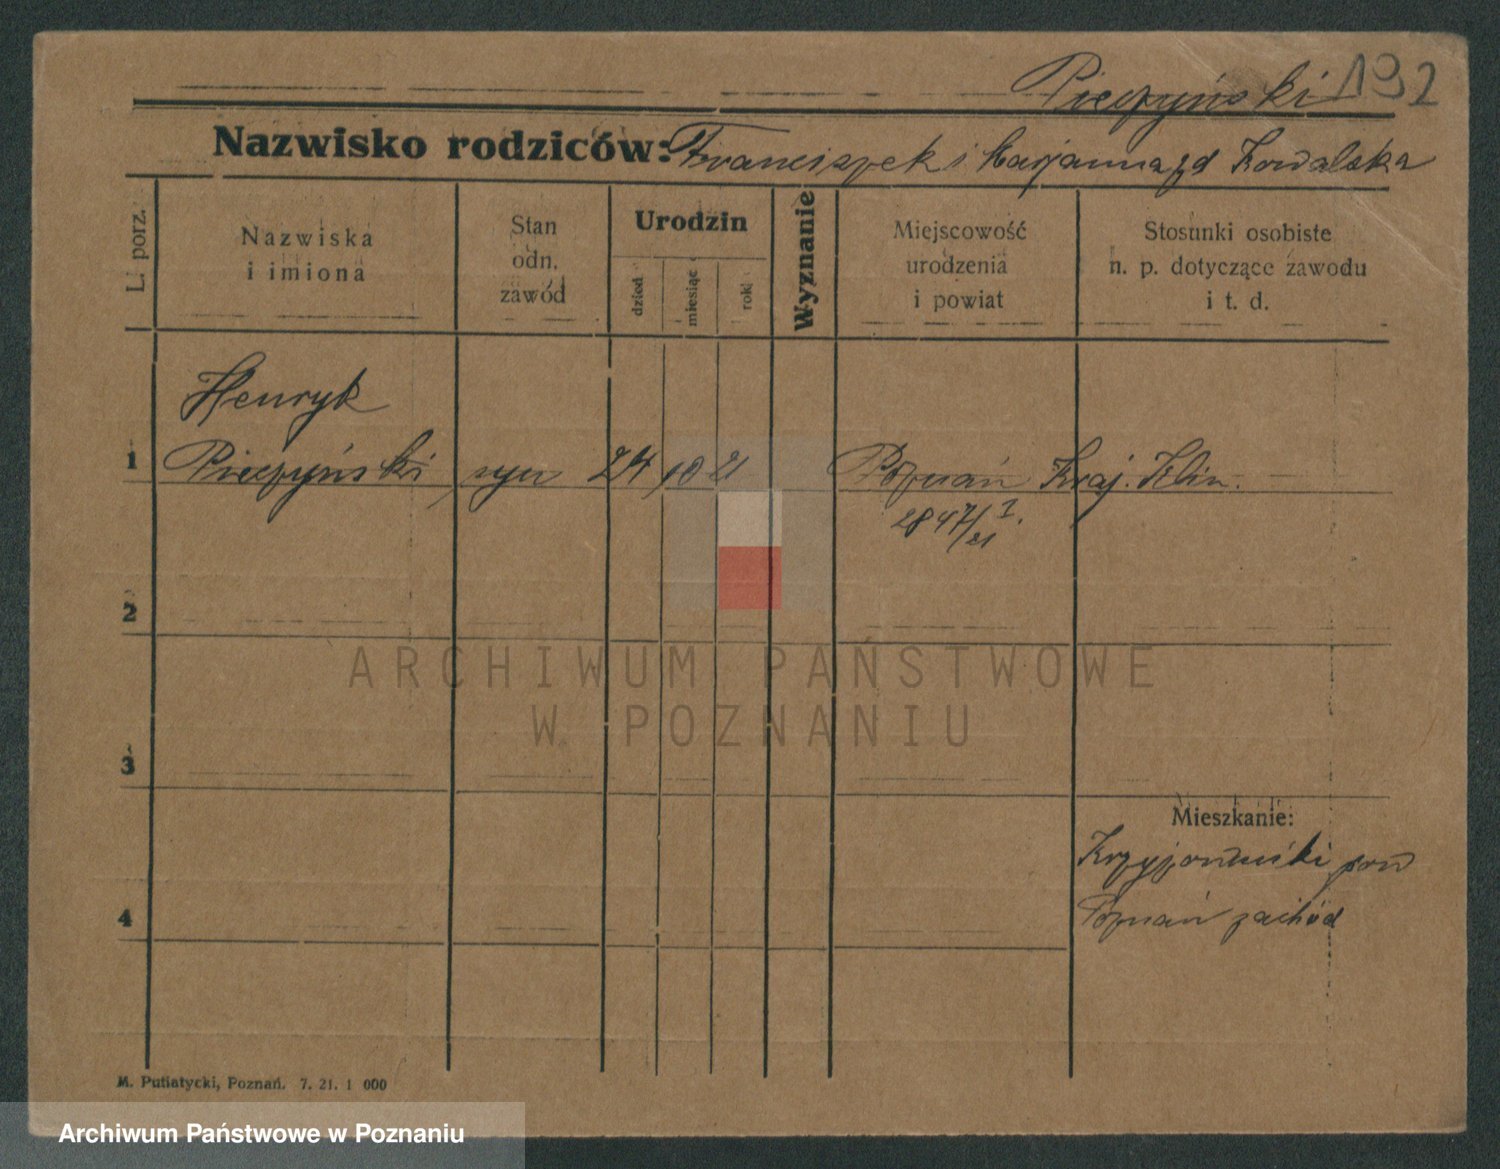 Pieczyński 192
Nazwisko rodziców: Franciszek i Marjanna zd Kowalska
L. porz.
Nazwiska
i imiona
Stan
odn.
zawód
Urodzin
dzień
miesiąc
rok
Wyznanie
Miejscowość
urodzenia
i powiat
Stosunki osobiste
n. p. dotyczące zawodu
i t. d.
Henryk
1 Pieczyński syn 24 10 21 Poznań Kraj. Klin.
2847/I.
/21
2
ARCHIWUM PAŃSTWOWE
W POZNANIU
3
Mieszkanie:
pow
4 Poznań zachód
M. Putiatycki, Poznań. 7. 21. 1 000
Archiwum Państwowe w Poznaniu